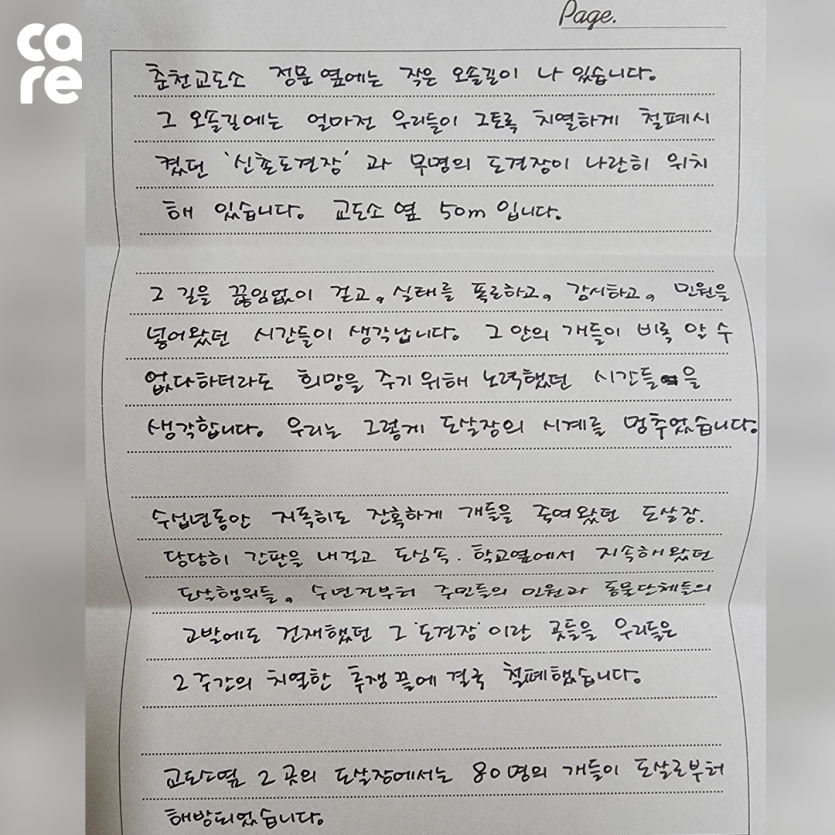 care
Page.
춘천교도소 정문 옆에는 작은 오솔길이 나 있습니다.
그 오솔길에는 얼마전 우리들이 그토록 치열하게 철폐시
켰던 '신촌도견장' 과 무명의 도견장이 나란히 위치
해 있습니다. 교도소 옆 50m 입니다.
그 길을 끊임없이 걷고, 실태를 폭로하고, 감시하고, 민원을
넣어왔던 시간들이 생각납니다. 그 안의 개들이 비록 알 수
없다하더라도 희망을 주기 위해 노력했던 시간들을
생각합니다. 우리는 그렇게 도살장의 시계를 멈추었습니다.
수십년동안 지독히도 잔혹하게 개들을 죽여왔던 도살장.
당당히 간판을 내걸고 도심속. 학교옆에서 지속해왔던
도살행위들, 수년전부터 주민들의 민원과 동물단체들의
고발에도 건재했던 그 '도견장' 이란 곳들을 우리들은
2주간의 치열한 투쟁 끝에 결국 철폐했습니다.
교도소옆 2곳의 도살장에서는 80명의 개들이 도살로부터
해방되었습니다.